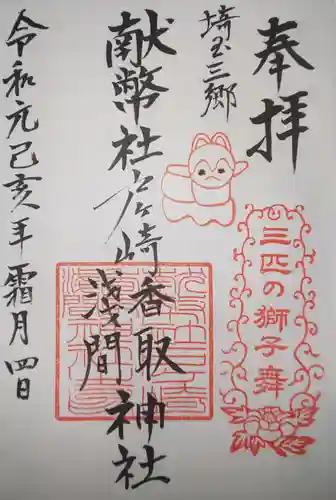 奉拝
埼玉三郷
三匹の獅子舞
献幣社戸ヶ崎香取
浅間神社
令和元己亥年霜月四日